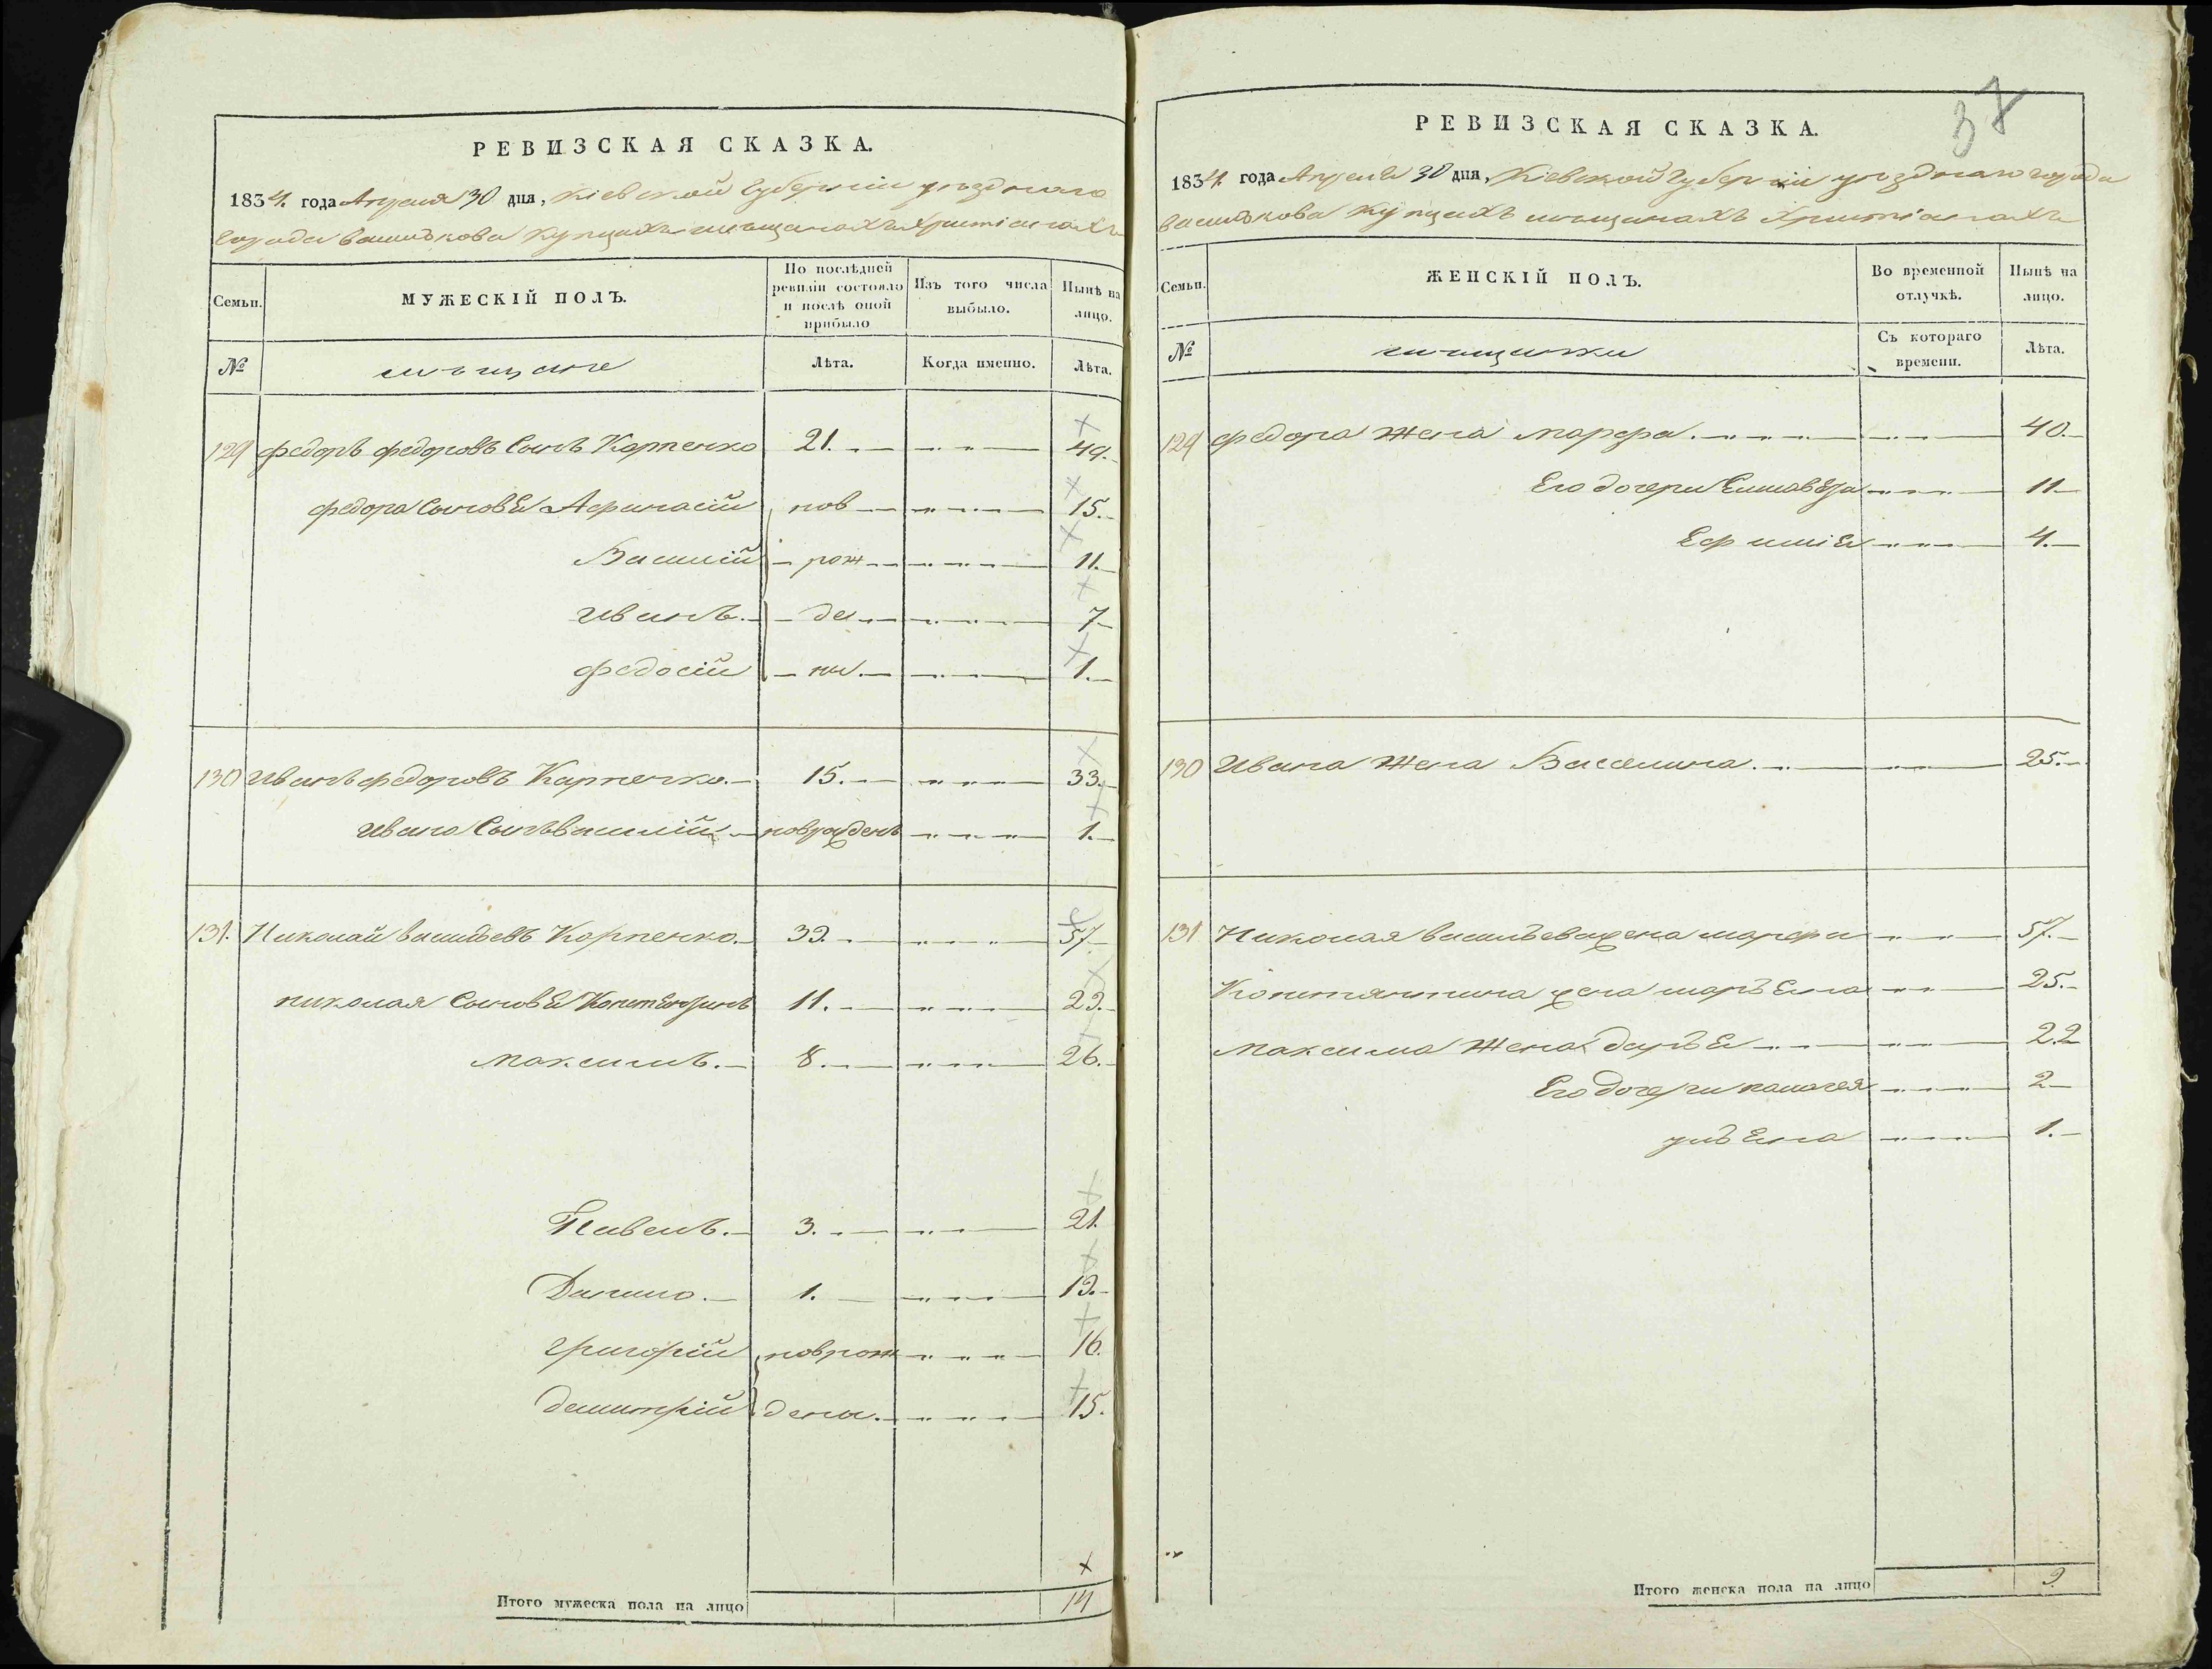 РЕВИЗСКАЯ СКАЗКА.
1834. года Апреля 30 дня, Кіевской Губерніи уѣзднаго
города Василькова Купцахъ мѣщанахъ Христіанахъ
Семьи.
МУЖЕСКІЙ ПОЛЪ.
По послѣдней
ревизіи состояло
и послѣ оной
прибыло
Изъ того числа
выбыло.
Нынѣ на
лицо.
№
мѣщане
Лѣта.
Когда именно.
Лѣта.
129 Федоръ Федоровъ Сынъ Карпенко 21. 49.
Федора Сыновья Афанасій нов 15.
Василій рож 11.
Иванъ. де 7
Федосій ны. 1.
130 Иванъ Федоровъ Карпенко. 15. 33.
Ивана Сынъ Василій новрожденъ 1.
131. Николай Васильевъ Карпенко. 39. 57.
Николая Сыновья Констентинъ 11. 29.
Максимъ. 8. 26.
Павелъ. 3. 21.
Данило. 1. 19.
Григорій новрож 16.
Демитрій дены. 15.
Итого мужеска пола на лицо 14
37
РЕВИЗСКАЯ СКАЗКА.
1834. года Апреля 30 дня, Кіевской Губерніи уѣзднаго города
Василькова Купцахъ мѣщанахъ Христіанахъ
Семьи.
ЖЕНСКІЙ ПОЛЪ.
Во временной
отлучкѣ.
Нынѣ на
лицо.
№
мѣщанки
Съ котораго
времени.
Лѣта.
129 Федора Жена Марфа. 40.
Его дочери Елисавета 11
Ефимія 4.
130 Ивана Жена Васелина. 25.
131 Николая Васильева жена Марфа 57.
Константина жена Марьяна 25.
Максима Жена Дарья 22
Его дочери Палагея 2
Ульяна 1.
Итого женска пола на лицо 9.